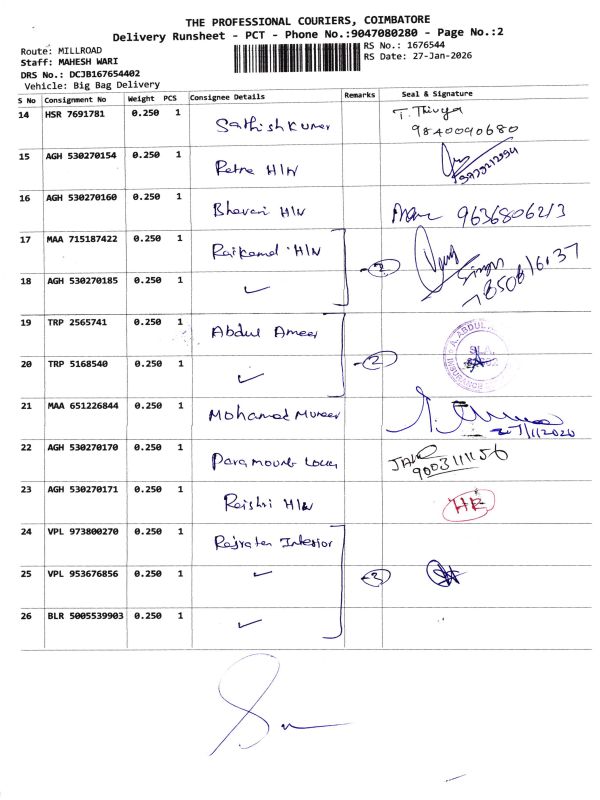 THE PROFESSIONAL COURIERS, COIMBATORE
Delivery Runsheet - PCT - Phone No.:9047080280 - Page No.:2
Route: MILLROAD
Staff: MAHESH WARI
DRS No.: DCJB167654402
Vehicle: Big Bag Delivery
RS No.: 1676544
RS Date: 27-Jan-2026
S No Consignment No Weight PCS Consignee Details Remarks Seal & Signature
14 HSR 7691781 0.250 1 Sathishkumar T. Thivya
9840090680
15 AGH 530270154 0.250 1 Retna H/W
16 AGH 530270160 0.250 1 Bhavani H/W 9636806213
17 MAA 715187422 0.250 1 Rajkamal H/W
18 AGH 530270185 0.250 1 ✓ -2- Singh
19 TRP 2565741 0.250 1 Abdul Ameer A. ABDUL
20 TRP 5168540 0.250 1 ✓ -2-
21 MAA 651226844 0.250 1 Mohamed Muneer
27/1/2026
22 AGH 530270170 0.250 1 Paramount 9003111156
23 AGH 530270171 0.250 1 Rajshri H/W HE
24 VPL 973800270 0.250 1 Rajratan Interior
25 VPL 953676856 0.250 1 ✓ -3-
26 BLR 5005539903 0.250 1 ✓